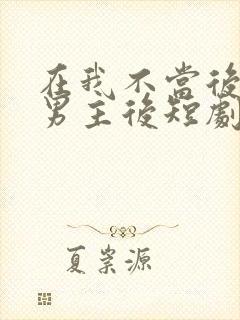 在我不當後
男主後短劇
夏崇源